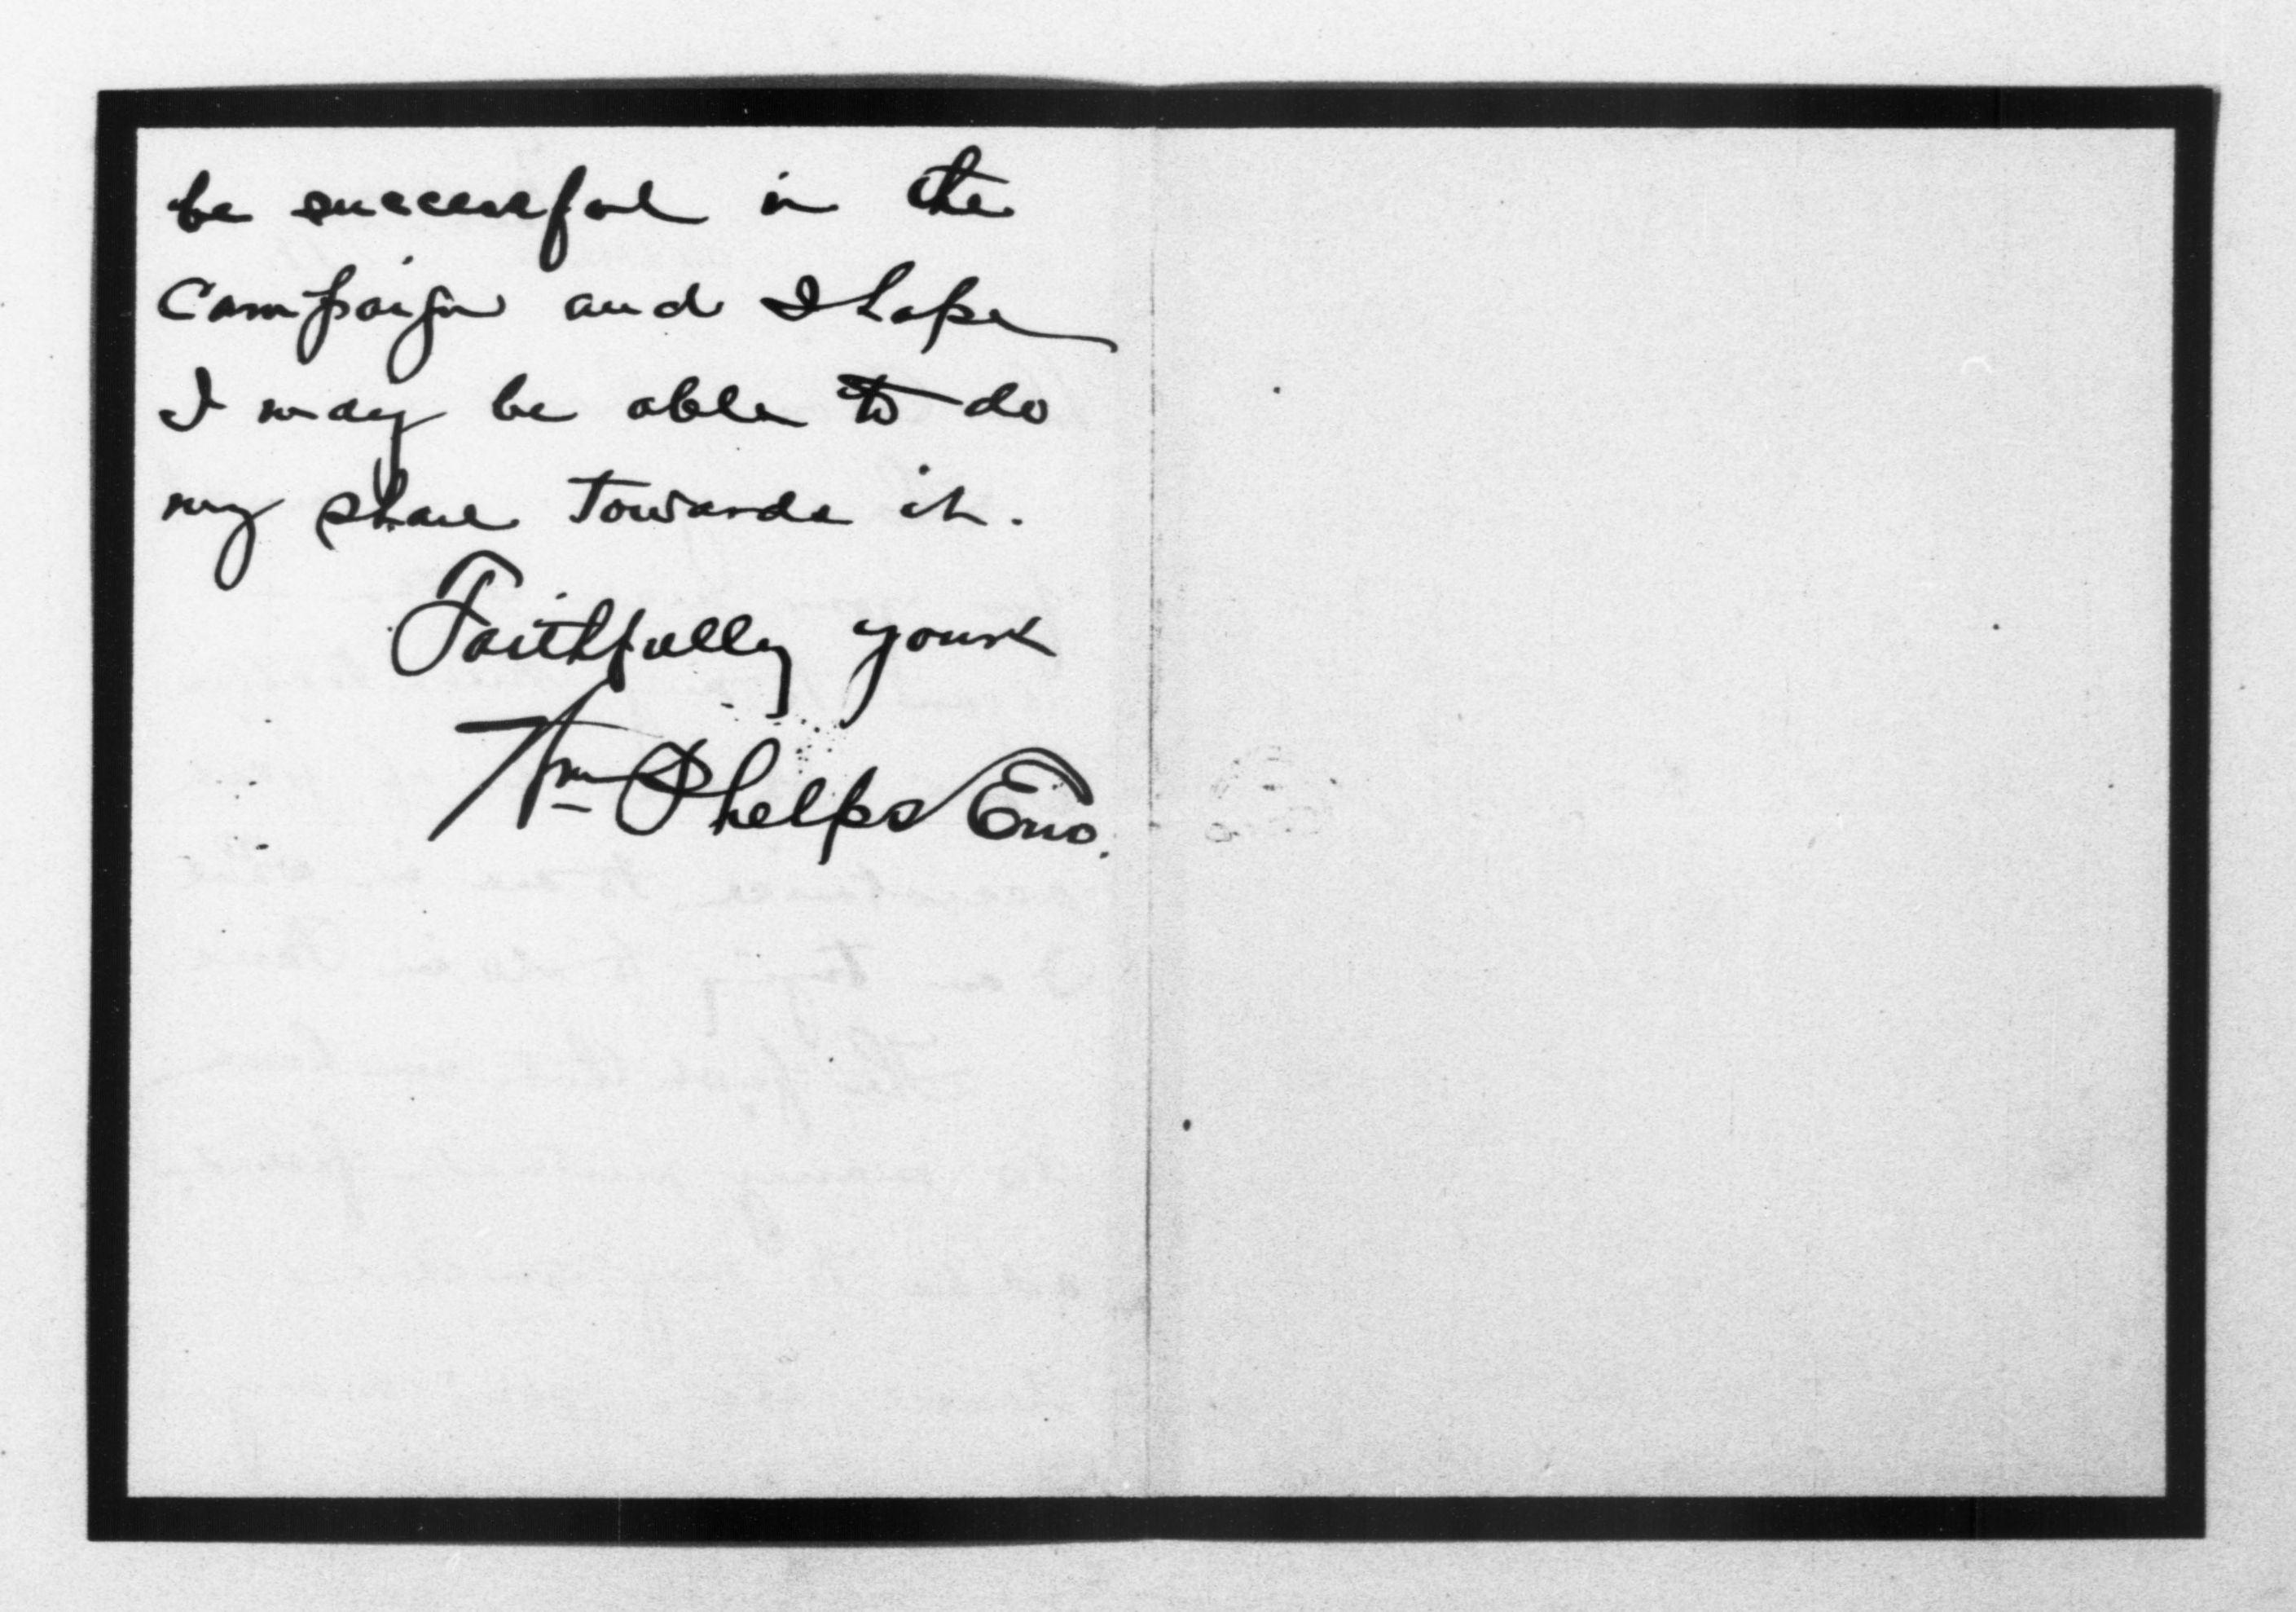 be successful in the
Campaign and I hope
I may be able to do
my share towards it.
Faithfully yours
Wm Phelps Eno.